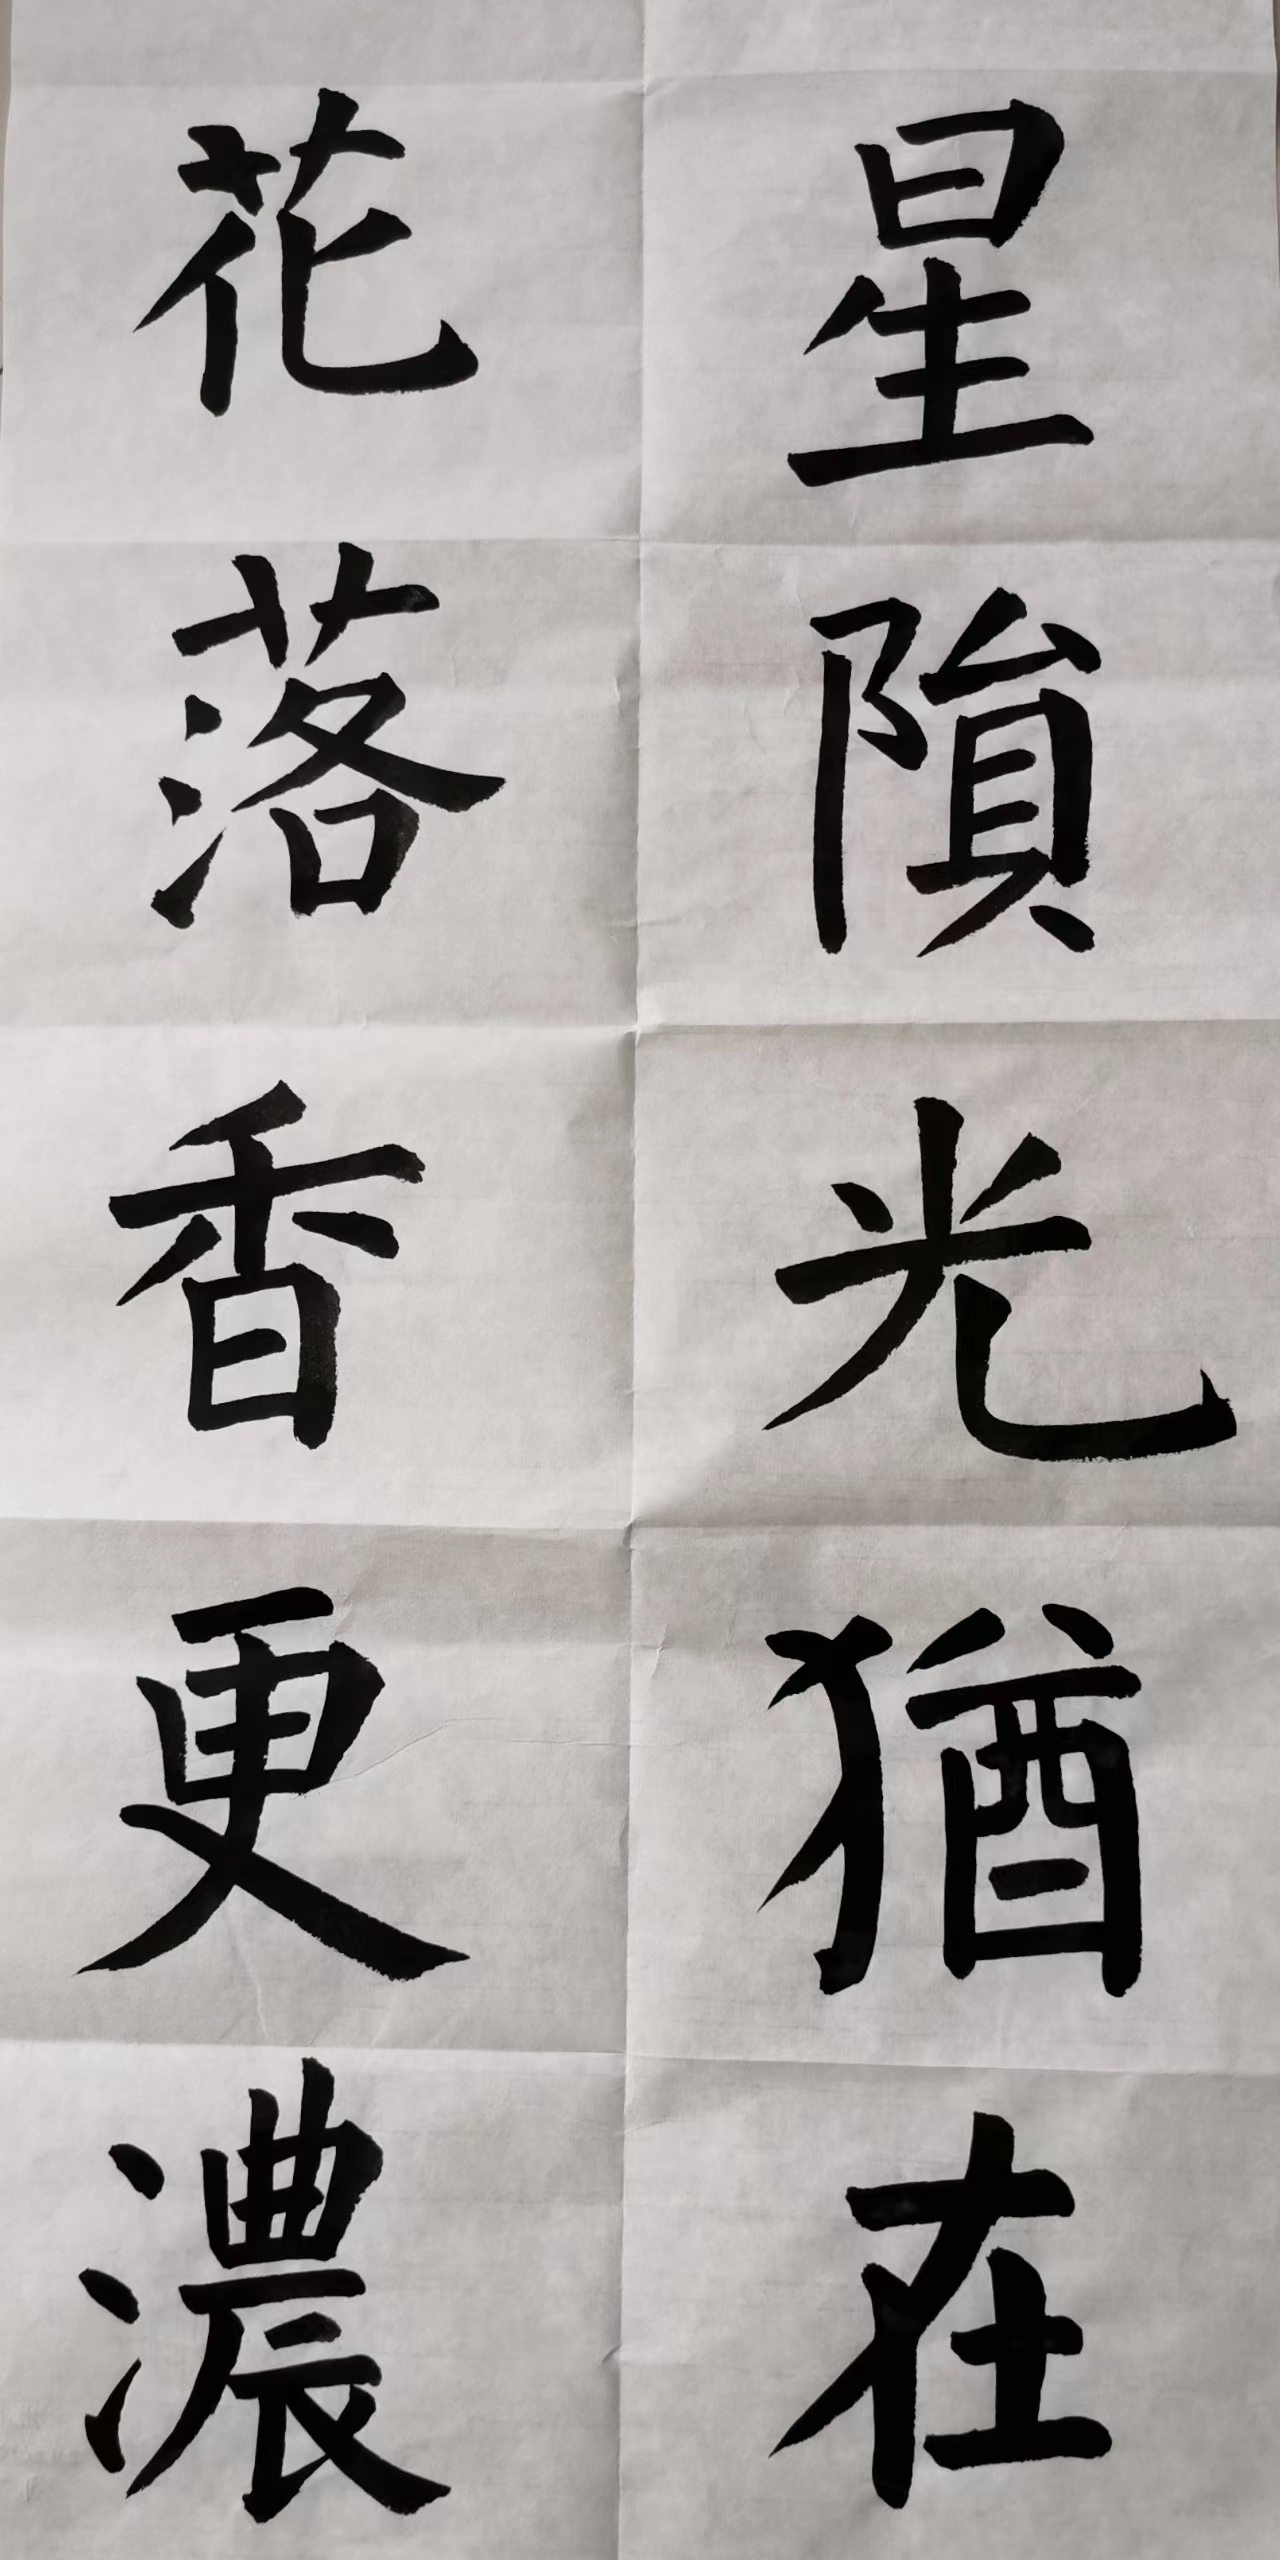 星隕光猶在
花落香更濃